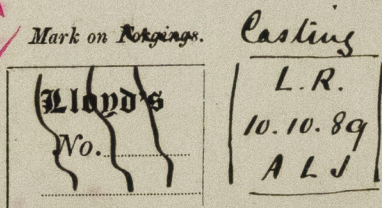 Mark on Forgings. Casting
Lloyd's
No.
L. R.
10. 10. 89
A L J